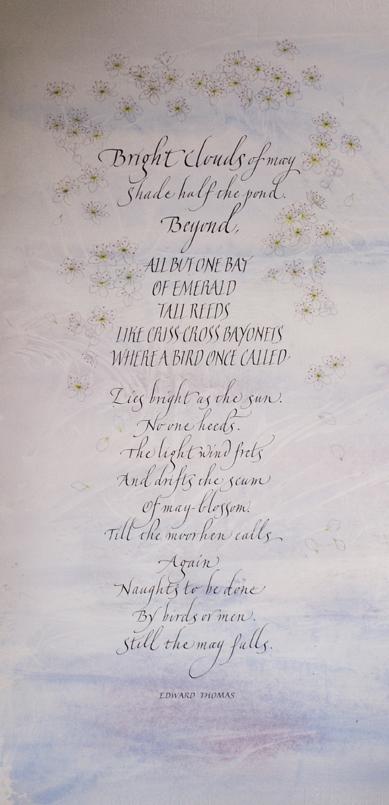 Bright Clouds of may
Shade half the pond.
Beyond,
ALL BUT ONE BAY
OF EMERALD
TALL REEDS
LIKE CRISS CROSS BAYONETS
WHERE A BIRD ONCE CALLED
Lies bright as the sun.
No one heeds.
The light wind frets
And drifts the scum
Of may-blossom.
Till the moorhen calls
Again
Naughts to be done
By birds or men.
Still the may falls.
EDWARD THOMAS